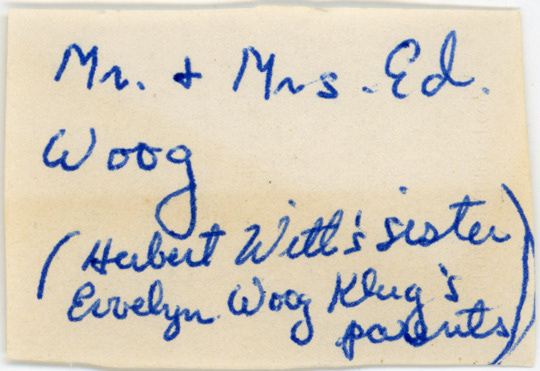 Mr. + Mrs. Ed.
Woog
(Herbert Witt's sister
Evvelyn Woog Klug's
parents)